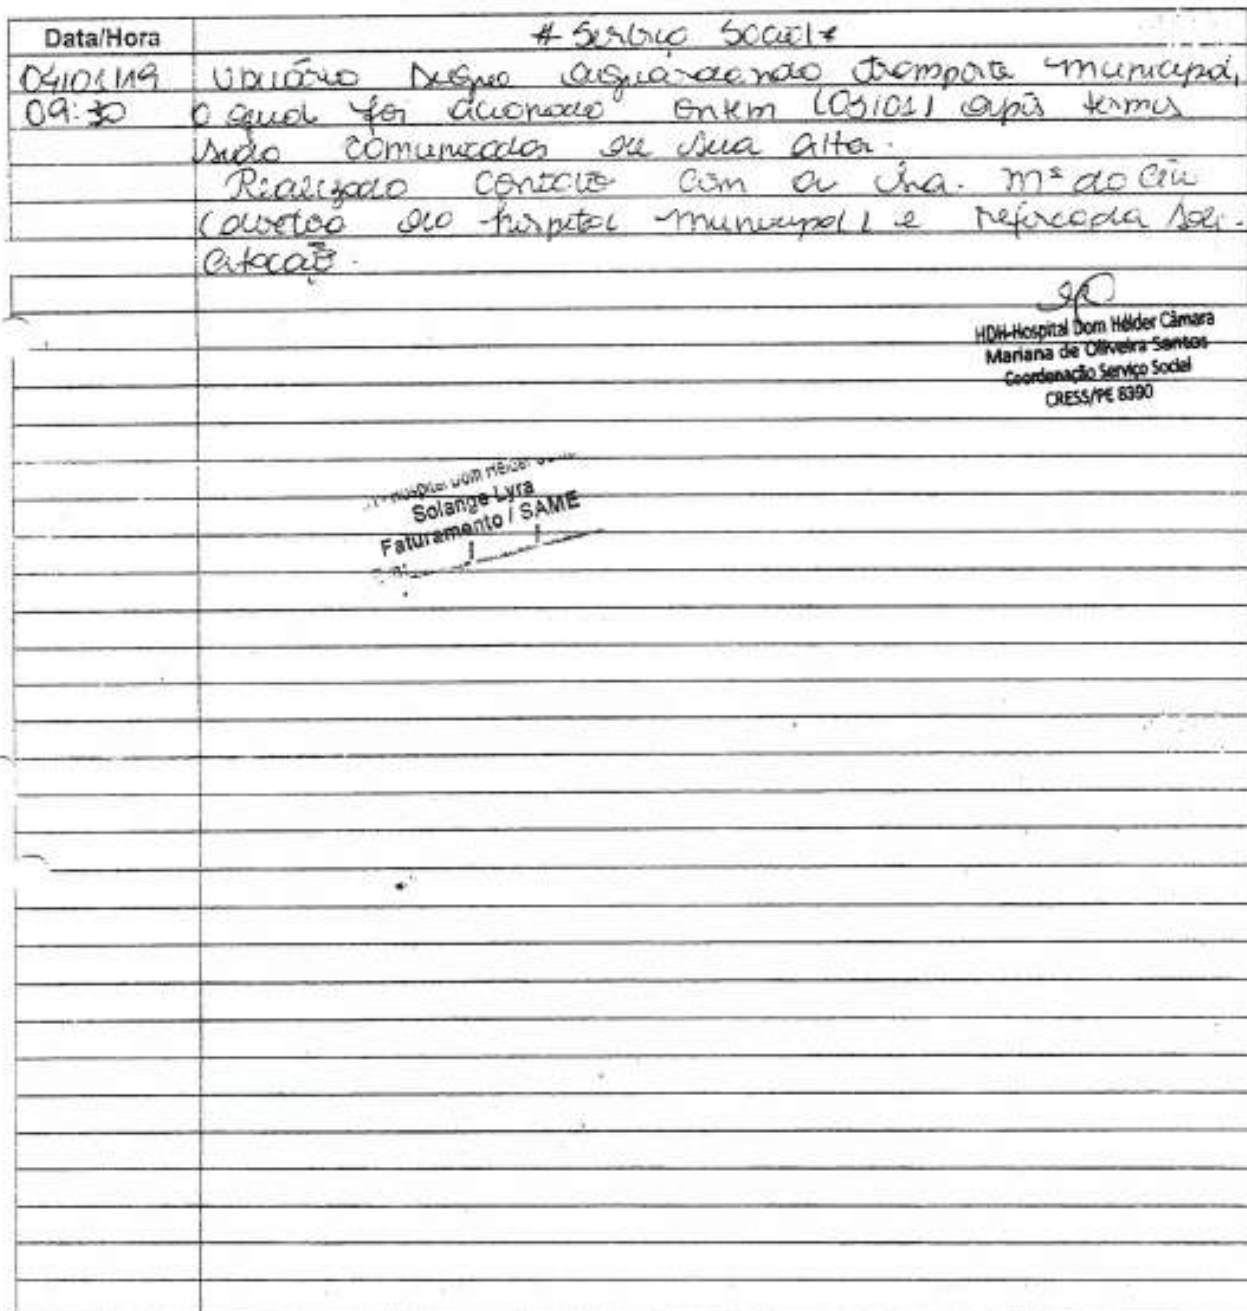 Data/Hora # Serviço Social #
04/01/19 Usuário segue aguardando transporte municipal,
09:30 o qual foi acionado ontem (03/01) após termos
sido comunicados de sua alta.
Realizado contato com a Sra. Mª do Céu
(diretora do hospital municipal) e reforçada soli-
citação.
HDH-Hospital Dom Hélder Câmara
Mariana de Oliveira Santos
Coordenação Serviço Social
CRESS/PE 8390
Hospital Dom Hélder
Solange Lyra
Faturamento / SAME